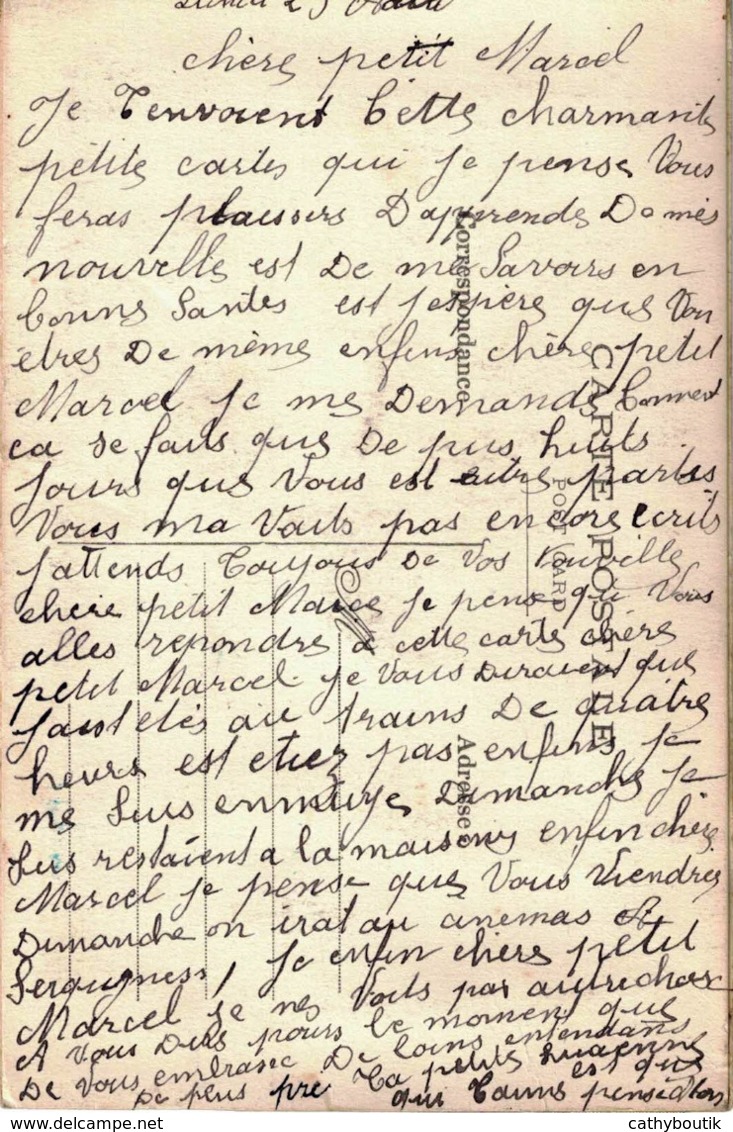 chère petit Marcel
Je T'envoient Cette charmants
petite cartes qui je pense Vous
feras plaisirs D'apprends De mes
nouvelle est De me Savoirs en
bonne Santés est j'espière que Vou
êtres De même enfins chère petit
Marcel Je me Demands Comment
ca se fais que De puis huits
Jours que Vous est partis
Vous ma Vaits pas encore ecrits
J'attends Toujous De Vos nouvelle
chère petit Marcel Je pense que Vous
alles repondre a cette carte chère
petit Marcel Je Vous diraient que
J'aist etés au trains De quatre
heures est etiez pas enfins Je
me Suis ennuiye Dimanche Je
Suis restaient a la maisons enfin chère
Marcel Je pense que Vous Viendres
Dimanche on irat au cinemas
Je enfin chère petit
Marcel Je ne Voits pas autre chose
A Vous Dire pours le moment que
De Vous embrasse De loins entendans
De plus pre Ta petite est que
qui T'aime
Correspondance
CARTE POSTALE
POST CARD
Adresse
cathyboutik